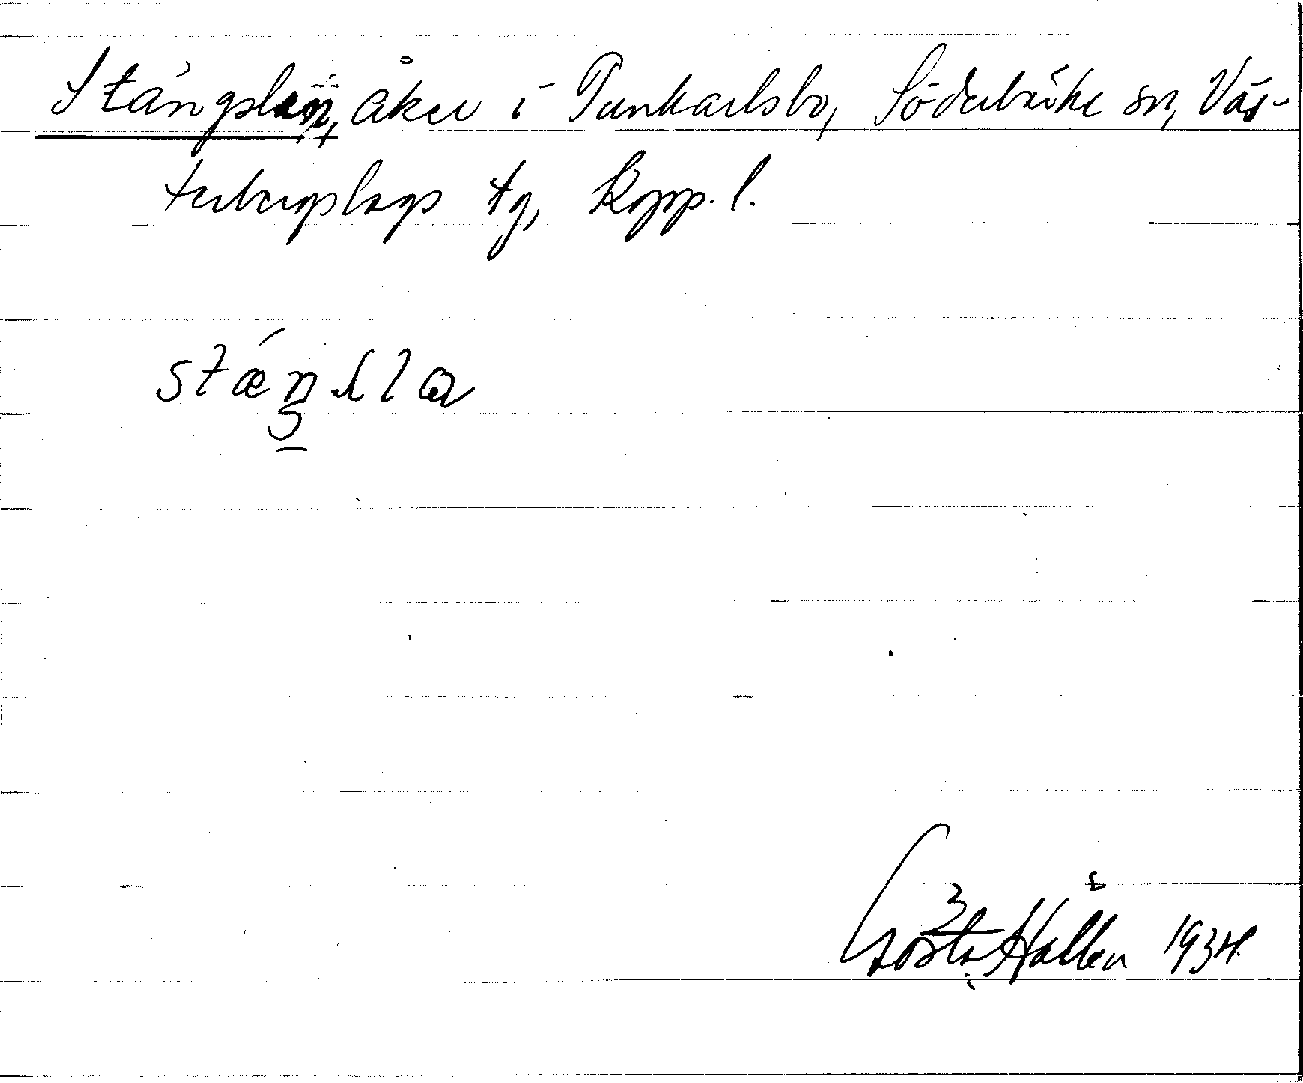 åker i Tunkarlsbo, Söderbärke sn, Väs-
terbergslags tg, Kopp. l.
Gösta Hallén 1934.